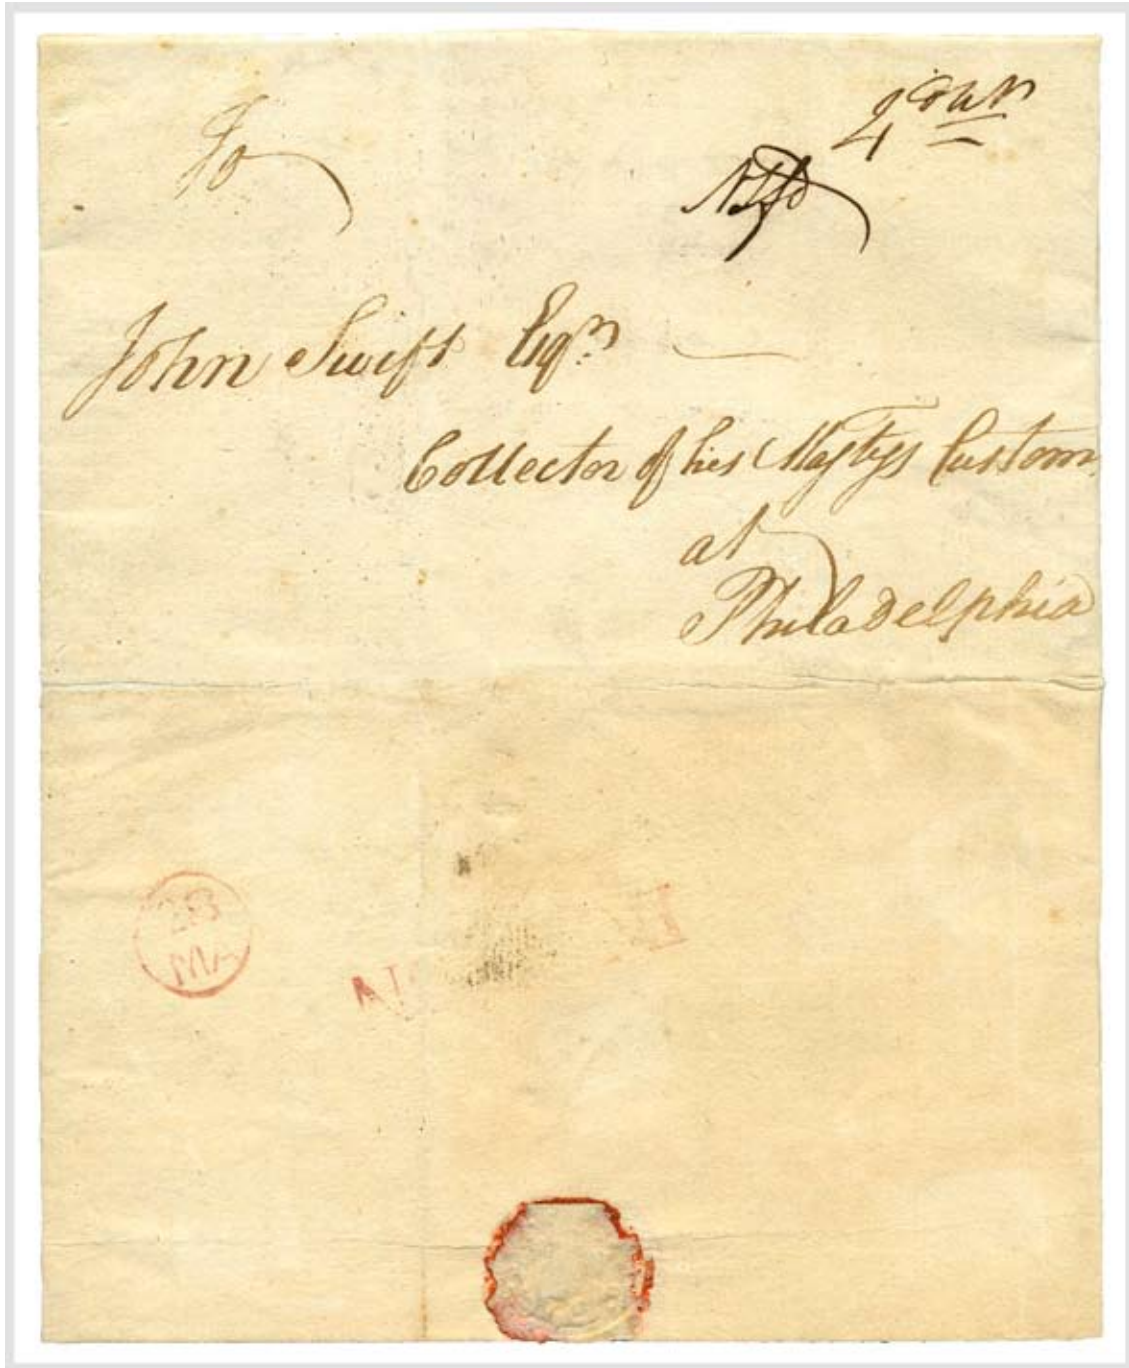 To
4
John Swift Esqr.
Collector of his Majtys Custom
at
Philadelphia
28
MA
N